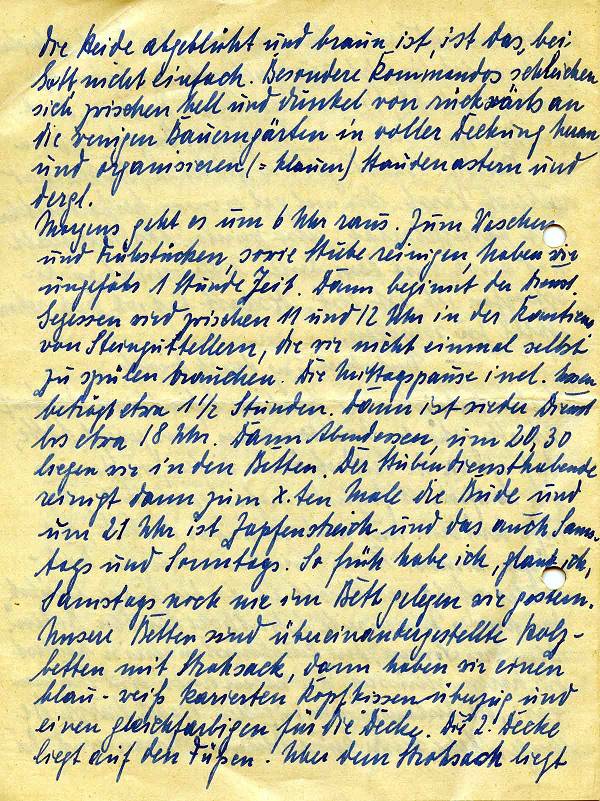 die Heide abgeblüht und braun ist, ist das, bei
Gott nicht einfach. Besondere Kommandos schleichen
sich zwischen hell und dunkel von rückwärts an
die wenigen Bauerngärten in voller Deckung heran
und organisieren (= klauen) Staudenastern und
dergl.
Morgens geht es um 6 Uhr raus. Zum Waschen
und Frühstücken, sowie Stube reinigen, haben wir
ungefähr 1 Stunde Zeit. Dann beginnt der Dienst.
Gegessen wird zwischen 11 und 12 Uhr in der Kantine
von Steinguttellern, die wir nicht einmal selbst
zu spülen brauchen. Die Mittagspause incl. Essen
beträgt etwa 1½ Stunden. Dann ist wieder Dienst
bis etwa 18 Uhr. Dann Abendessen, um 20,30
liegen wir in den Betten. Der Stubendiensthabende
reinigt dann zum X.ten Male die Bude und
um 21 Uhr ist Zapfenstreich und das auch Sams-
tags und Sonntags. So früh habe ich, glaub ich,
Samstags noch nie im Bett gelegen wie gestern.
Unsere Betten sind übereinandergestellte Holz-
betten mit Strohsack, dann haben wir einen
blau-weiß karierten Kopfkissenüberzug und
einen gleichfarbigen für die Decke. Die 2. Decke
liegt auf den Füßen. Über dem Strohsack liegt